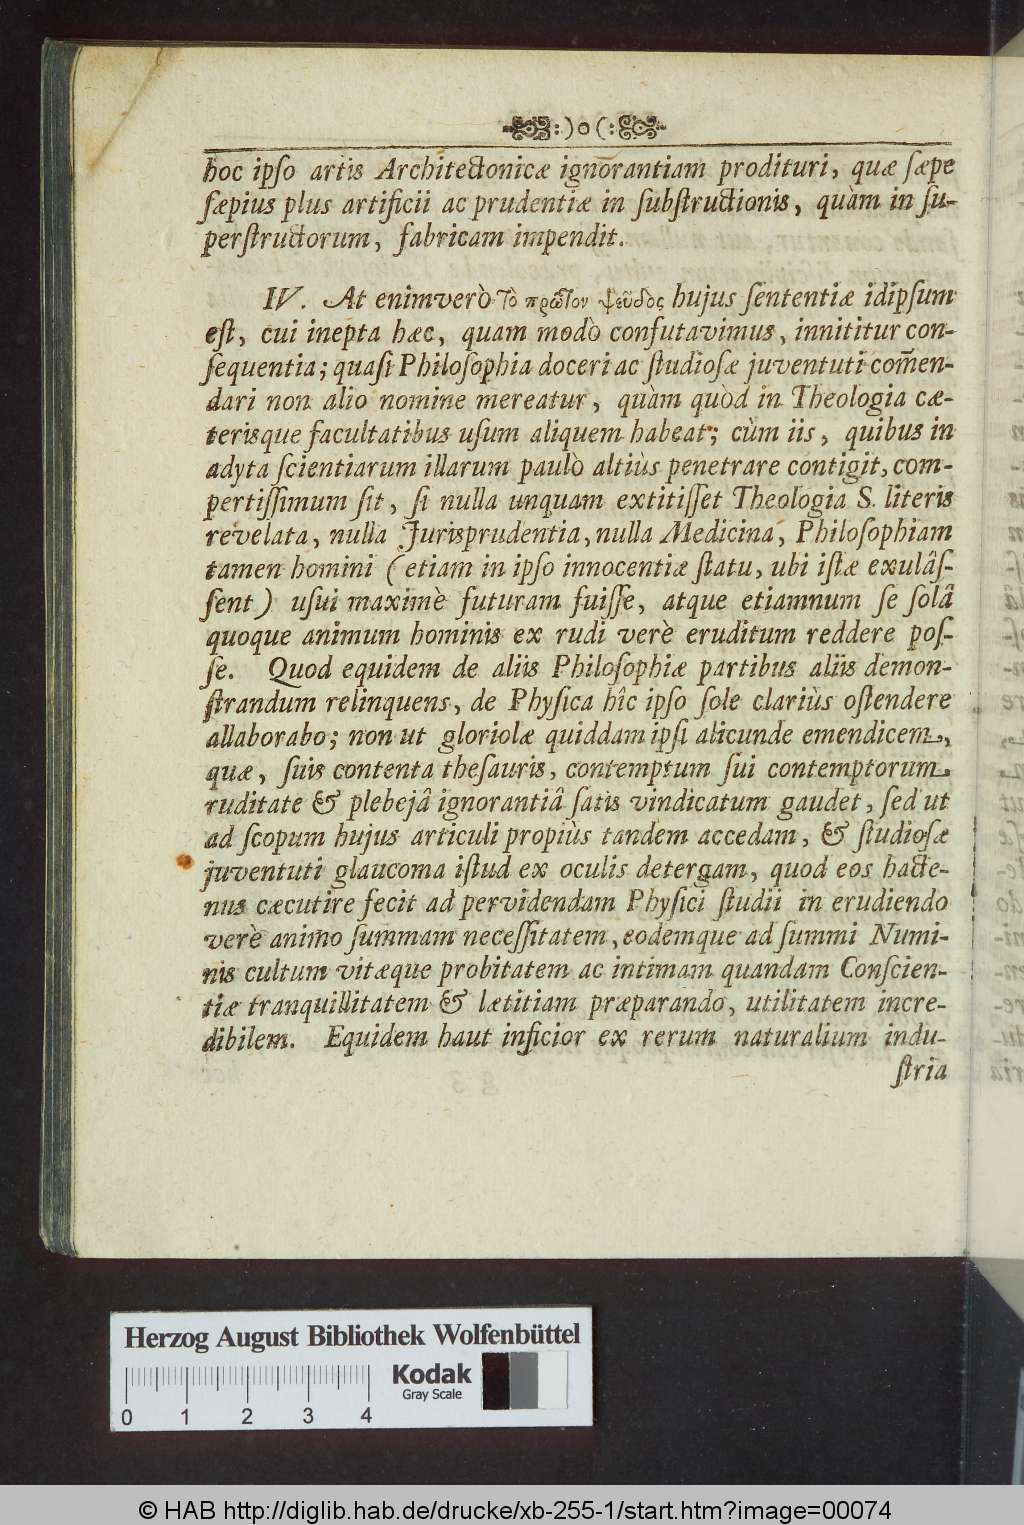 :)o(:
hoc ipſo artis Architectonicæ ignorantiam prodituri, quæ ſæpe
ſæpius plus artificii ac prudentiæ in ſubſtructionis, quàm in ſu-
perſtructorum, fabricam impendit.
IV. At enimverò τὸ πρῶτον ψεῦδος hujus ſententiæ idipſum
eſt, cui inepta hæc, quam modò confutavimus, innititur con-
ſequentia; quaſi Philoſophia doceri ac ſtudioſæ juventuti com̃en-
dari non alio nomine mereatur, quàm quòd in Theologia cæ-
terisque facultatibus uſum aliquem habeat; cùm iis, quibus in
adyta ſcientiarum illarum paulò altiùs penetrare contigit, com-
pertiſſimum ſit, ſi nulla unquam extitiſſet Theologia S. literis
revelata, nulla Jurisprudentia, nulla Medicina, Philoſophiam
tamen homini (etiam in ipſo innocentiæ ſtatu, ubi iſtæ exulâſ-
ſent) uſui maximè futuram fuiſſe, atque etiamnum ſe ſolâ
quoque animum hominis ex rudi verè eruditum reddere poſ-
ſe. Quod equidem de aliis Philoſophiæ partibus aliis demon-
ſtrandum relinquens, de Phyſica hîc ipſo ſole clariùs oſtendere
allaborabo; non ut gloriolæ quiddam ipſi alicunde emendicem,
quæ, ſuis contenta theſauris, contemptum ſui contemptorum
ruditate & plebejâ ignorantiâ ſatis vindicatum gaudet, ſed ut
ad ſcopum hujus articuli propiùs tandem accedam, & ſtudioſæ
juventuti glaucoma iſtud ex oculis detergam, quod eos hacte-
nus cæcutire fecit ad pervidendam Phyſici ſtudii in erudiendo
verè animo ſummam neceſſitatem, eodemque ad ſummi Numi-
nis cultum vitæque probitatem ac intimam quandam Conſcien-
tiæ tranquillitatem & lætitiam præparando, utilitatem incre-
dibilem. Equidem haut inficior ex rerum naturalium indu-
ſtria
Herzog August Bibliothek Wolfenbüttel
Kodak
Gray Scale
0 1 2 3 4
© HAB http://diglib.hab.de/drucke/xb-255-1/start.htm?image=00074